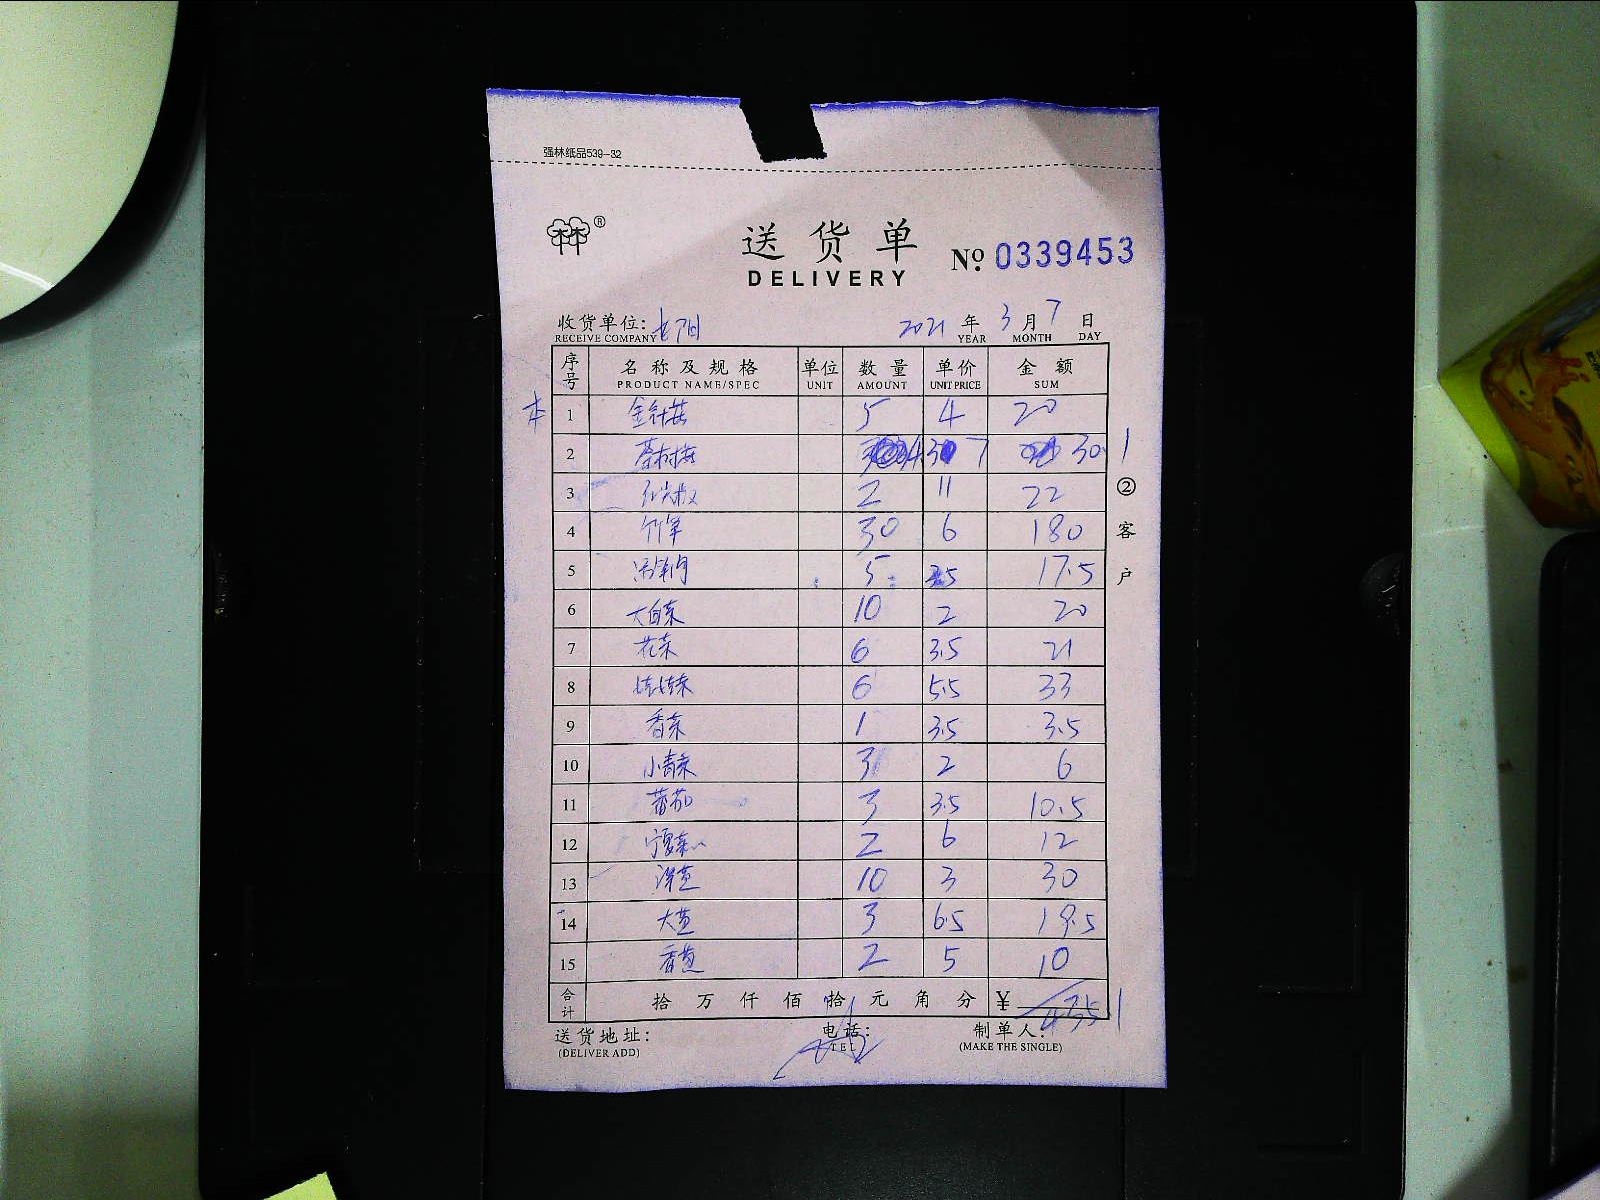 强林纸品539-32
®
送货单
DELIVERY
Nº 0339453
收货单位:
RECEIVE COMPANY
2021 年 3 月 7 日
YEAR MONTH DAY
序号 名称及规格 单位 数量 单价 金额
PRODUCT NAME/SPEC UNIT AMOUNT UNIT PRICE SUM
本
1 金针菇 5 4 20
2 茶树菇 7 30
3 2 11 22
4 竹笋 30 6 180
5 5 3.5 17.5
6 大白菜 10 2 20
7 花菜 6 3.5 21
8 娃娃菜 6 5.5 33
9 香菜 1 3.5 3.5
10 小青菜 3 2 6
11 蕃茄 3 3.5 10.5
12 宁夏菜心 2 6 12
13 洋葱 10 3 30
14 大葱 3 6.5 19.5
15 香葱 2 5 10
合计 拾万仟佰拾元角分 ¥ 435
② 客户
送货地址: 电话: 制单人:
(DELIVER ADD) TEL (MAKE THE SINGLE)